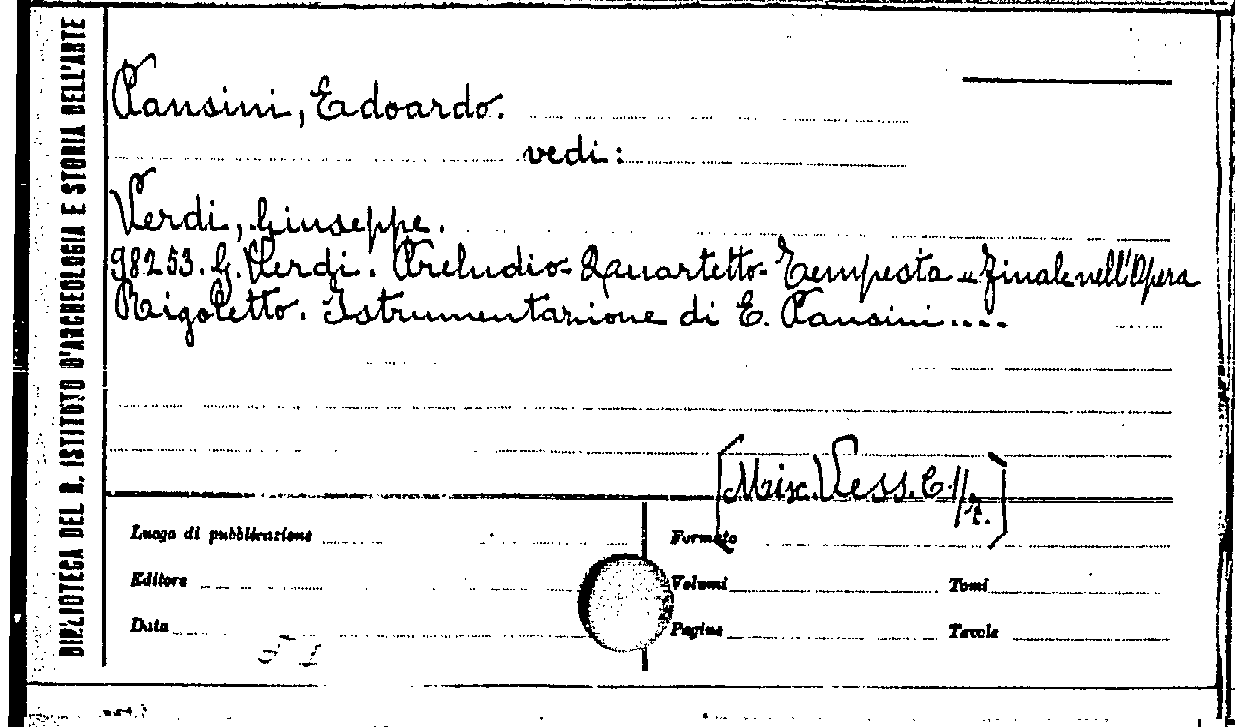 BIBLIOTECA DEL R. ISTITUTO D'ARCHEOLOGIA E STORIA DELL'ARTE
Pansini, Edoardo.
vedi:
Verdi, Giuseppe.
98253. G. Verdi. Preludio- Quartetto- Tempesta e Finale nell'Opera
Rigoletto. Istrumentazione di E. Pansini....
[Misc. Vess. C. 1/
Luogo di pubblicazione
Formato
Editore
Volumi
Tomi
Data
Pagine
Tavole